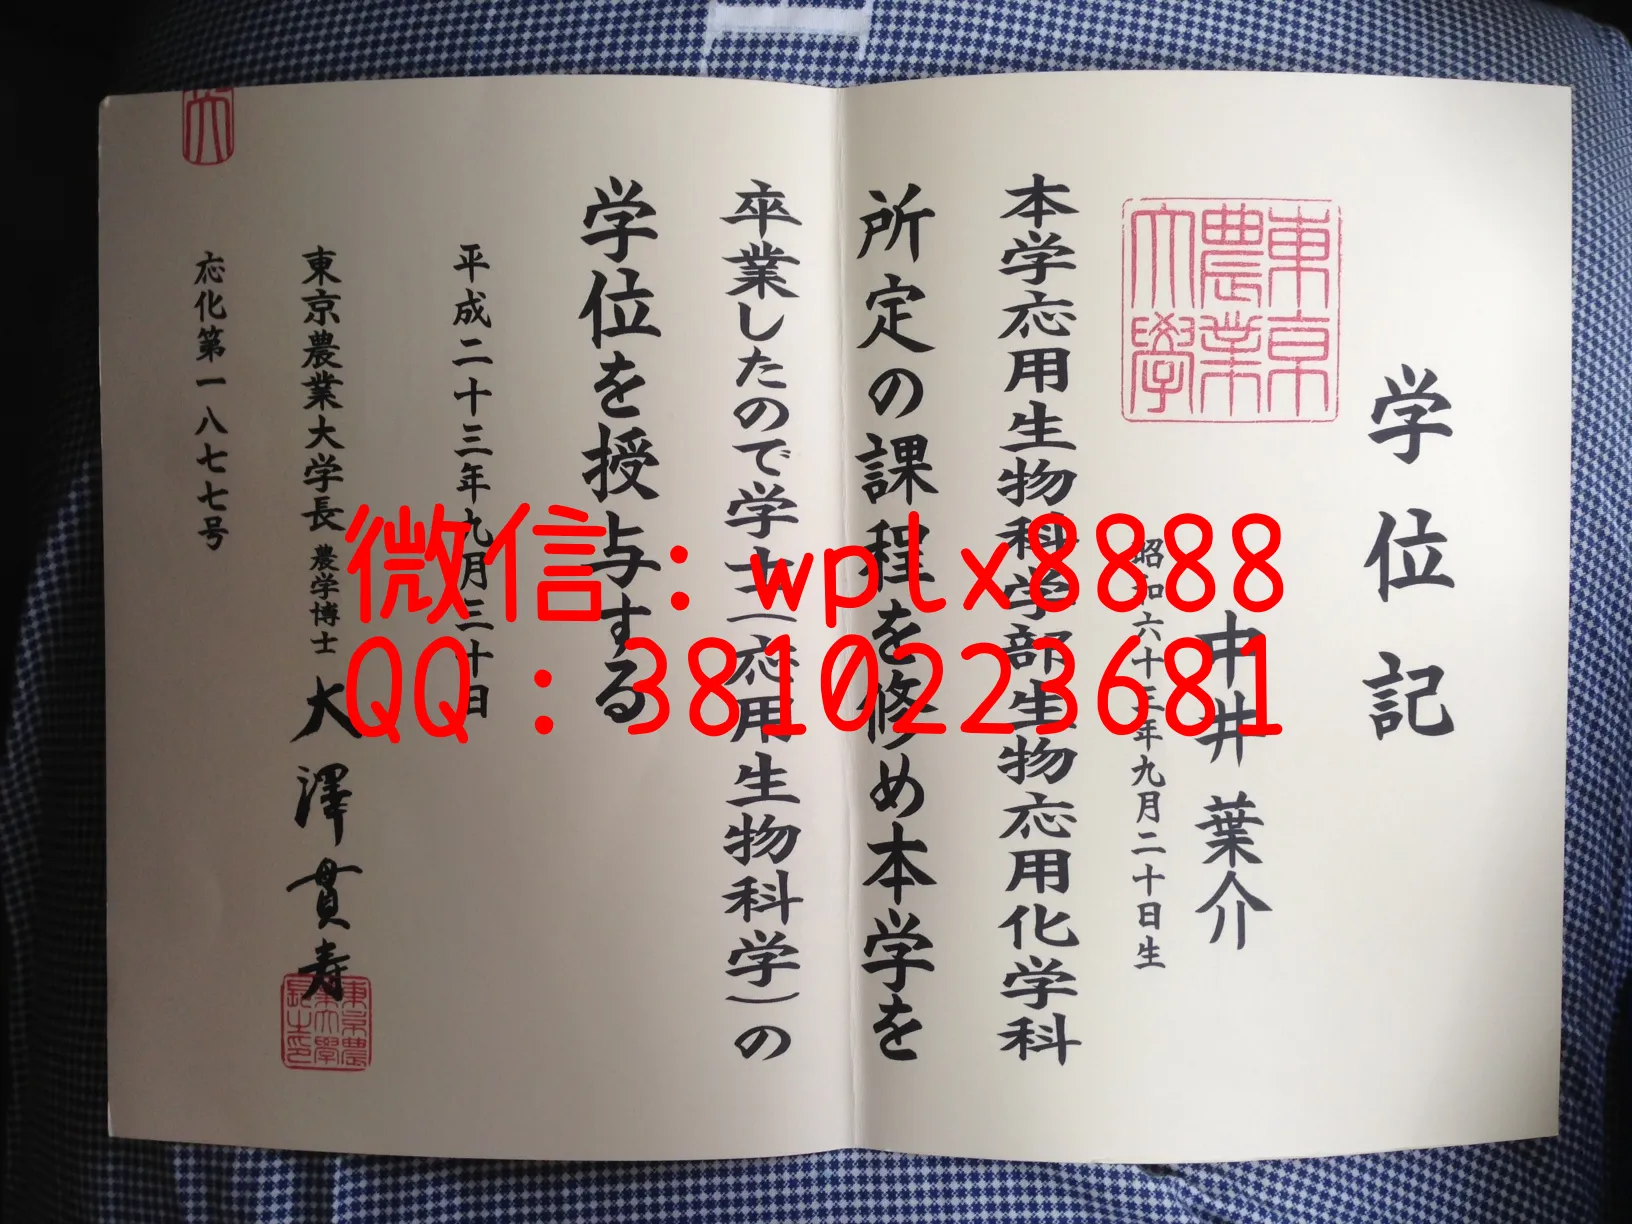 学位記
東京
農業
大學
中井 葉介
昭和六十三年九月二十日生
本学応用生物科学部生物応用化学科
所定の課程を修め本学を
卒業したので学士(応用生物科学)の
学位を授与する
平成二十三年九月三十日
東京農業大学長 農学博士 大澤貫寿
東京農
業大學
長之印
応化第一八七七号
微信：wplx8888
QQ：3810223681